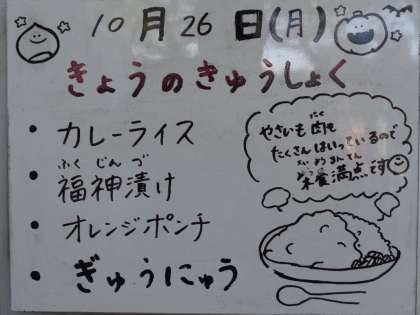 10月26日(月)
きょうのきゅうしょく
・カレーライス
ふくじんづ
・福神漬け
・オレンジポンチ
・ぎゅうにゅう
にく
やさいも肉も
たくさんはいっているので
満点です